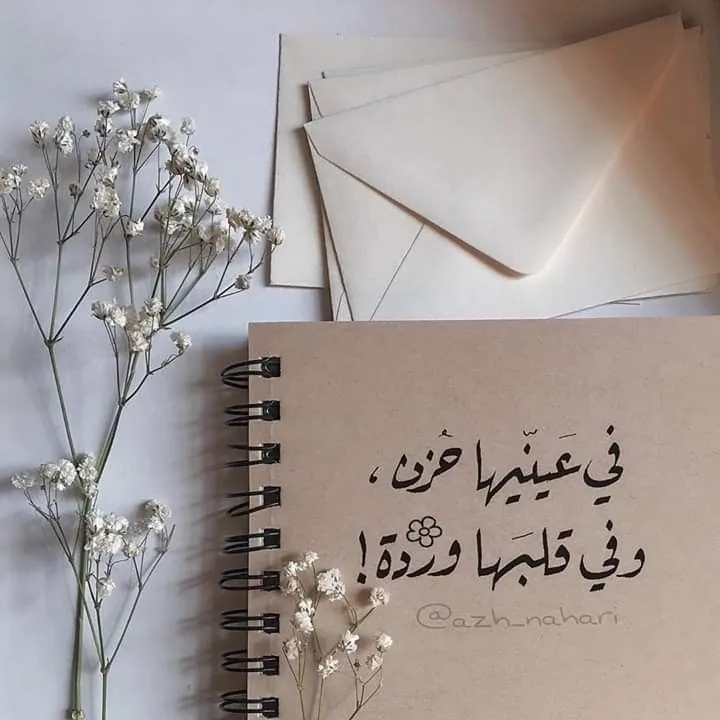 في عَينّيها حُزن ،
وفي قلبَها وردة!
@azh_nahari